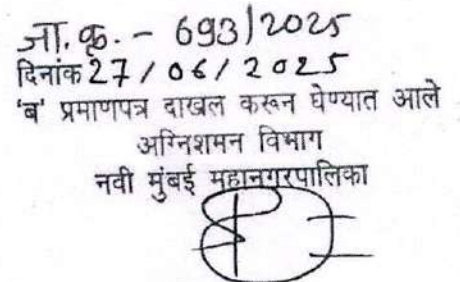 जा. क्र. - 693/2025
दिनांक 27/06/2025
'ब' प्रमाणपत्र दाखल करून घेण्यात आले
अग्निशमन विभाग
नवी मुंबई महानगरपालिका